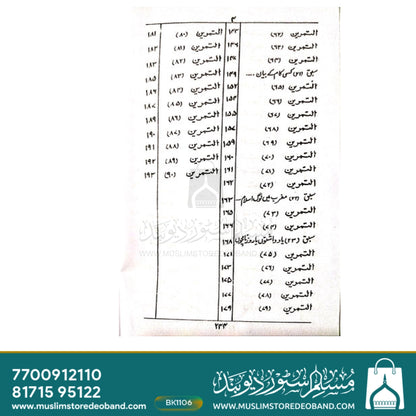 التمرین (۶۲)
التمرین (۶۳) ۱۴۶
التمرین (۶۴)
سبق (۲۱) کسی کام کے بیان .... ۱۴۹
التمرین (۶۵) ۱۵۲
التمرین (۶۶) ۱۵۴
التمرین (۶۷) ۱۵۵
التمرین (۶۸) ۱۵۷
التمرین (۶۹) ۱۵۹
التمرین (۷۰) ۱۶۰
التمرین (۷۱) ۱۶۱
التمرین (۷۲) ۱۶۲
سبق (۲۲) مغرب میں لوگ اسلام ... ۱۶۳
التمرین (۷۳) ۱۶۵
التمرین (۷۴) ۱۶۶
سبق (۲۳) یادداشتوں یا روزنامچوں ۱۶۸
التمرین (۷۵) ۱۷۱
التمرین (۷۶) ۱۷۳
التمرین (۷۷) ۱۷۵
التمرین (۷۸) ۱۷۷
التمرین (۷۹) ۱۷۹
التمرین (۸۰) ۱۸۱
التمرین (۸۱) ۱۸۲
التمرین (۸۲) ۱۸۳
التمرین (۸۳) ۱۸۵
التمرین (۸۴) ۱۸۶
التمرین (۸۵) ۱۸۷
التمرین (۸۶) ۱۸۹
التمرین (۸۷) ۱۹۰
التمرین (۸۸) ۱۹۱
التمرین (۸۹) ۱۹۲
التمرین (۹۰) ۱۹۳
مسلم اسٹور دیوبند
WWW.MUSLIMSTOREDEOBAND.COM
7700912110
81715 95122
www.muslimstoredeoband.com
BK1106
مسلم اسٹور دیوبند